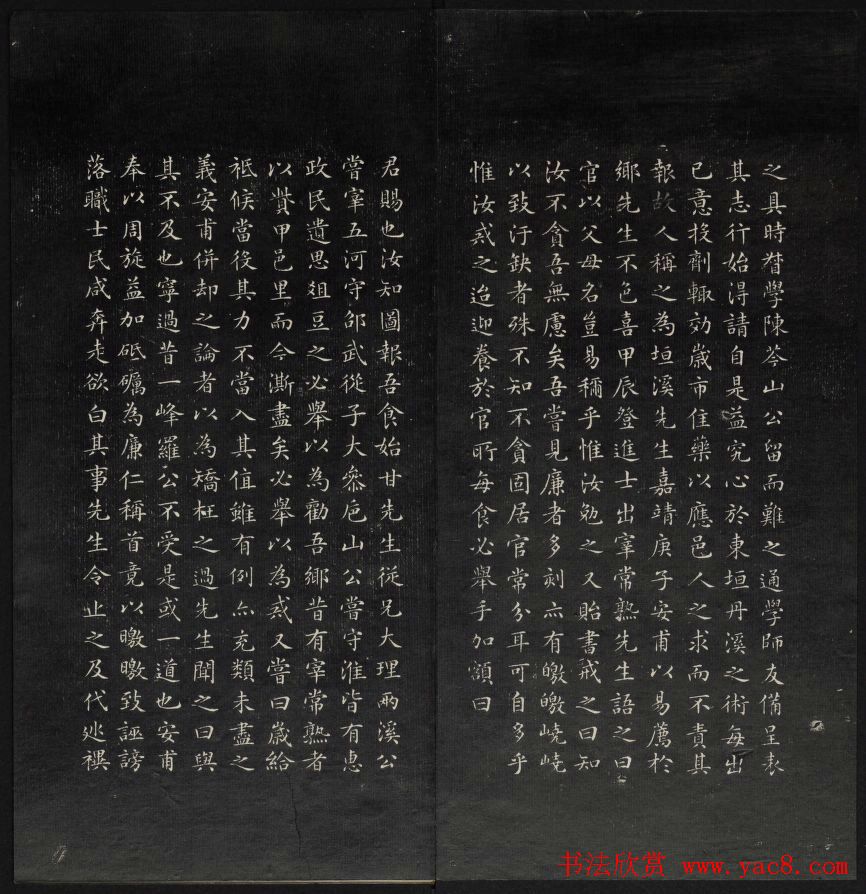 之具時督學陳蓉山公留而難之通學師友備呈表
其志行始淂請自是益究心於東垣丹溪之術每出
已意投劑輙効歲市佳藥以應邑人之求而不責其
報故人稱之為垣溪先生嘉靖庚子安甫以易薦於
鄉先生不色喜甲辰登進士出宰常熟先生語之曰
官以父母名豈易稱乎惟汝勉之又貽書戒之曰知
汝不貪吾無慮矣吾嘗見廉者多刻亦有皦皦嶢嶢
以致汙缺者殊不知不貪固居官常分耳可自多乎
惟汝戒之迨迎養於官所每食必舉手加額曰
君賜也汝知圖報吾食始甘先生従兄大理兩溪公
嘗宰五河守邵武從子大參巵山公嘗守淮皆有惠
政民遺思俎豆之必舉以為勸吾鄉昔有宰常熟者
以貲甲邑里而今澌盡矣必舉以為戒又嘗曰歲給
祗候當後其力不當入其值雖有例亦充類未盡之
義安甫併却之論者以為矯枉之過先生聞之曰與
其不及也寧過昔一峰羅公不受是或一道也安甫
奉以周旋益加砥礪為廉仁稱首竟以皦皦致誣謗
落職士民咸奔走欲白其事先生令止之及代迯襆
书法欣赏 www.yac8.com